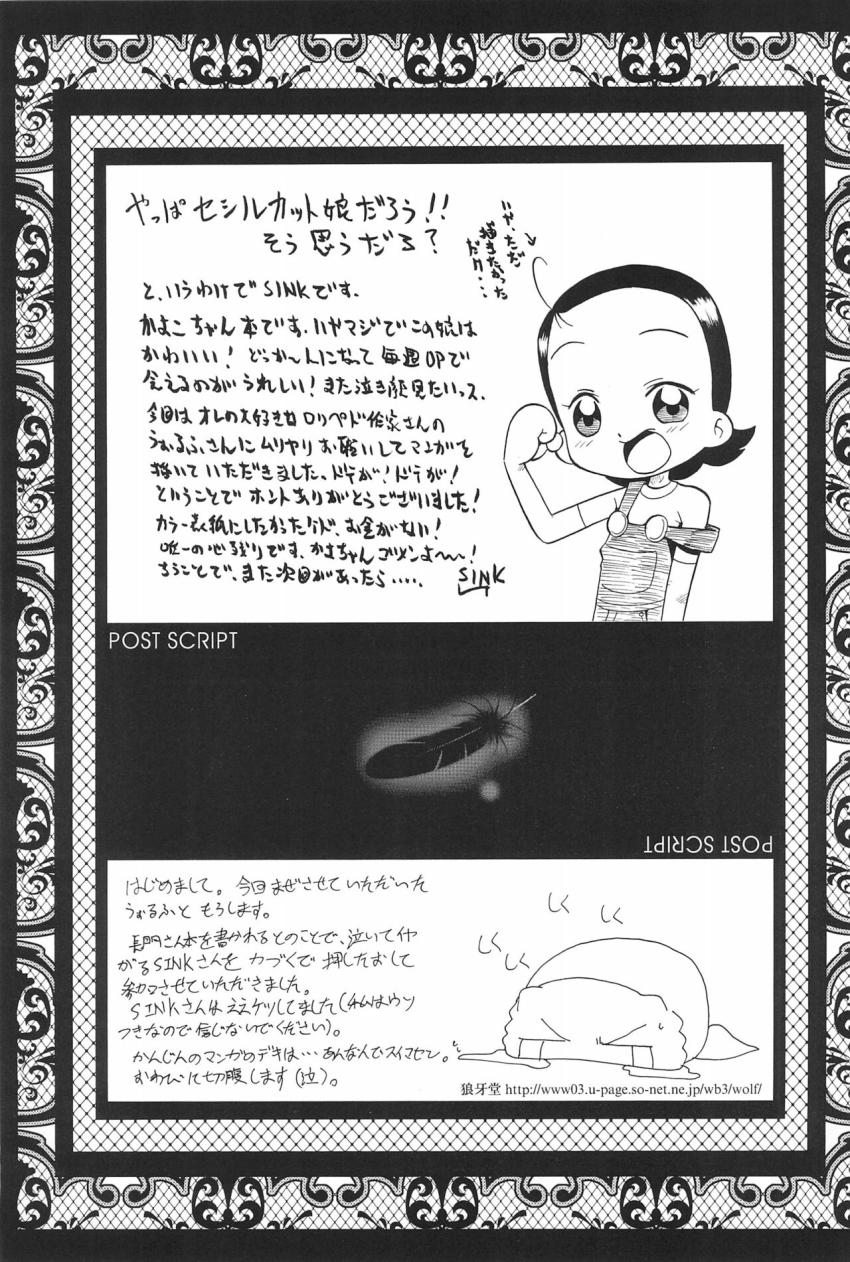 やっぱ セシルカット娘だろう!!
そう思うだろ?
いや、ただ
描きたかった
だけ・・・
と、いうわけで SINKです.
かよこちゃん本です.いやマジでこの娘は
かわいい! どっか〜んになって毎週OPで
会えるのがうれしい!また泣き顔見たいっス.
今回は オレの大好きな ロリペド作家さんの
うぉるふさんにムリヤリお願いしてマンガを
描いていただきました、ドテが!ドテが!
ということで ホントありがとうございました!
カラー表紙にしたかったケド、お金がない!
唯一の心残りです、かよちゃんゴメンよ〜〜!
ちうことで、また次回があったら・・・・
SINK
POST SCRIPT
POST SCRIPT
はじめまして。今回まぜさせていただいた
うぉるふと もうします。
長門さん本を書かれるとのことで、泣いてイヤ
がるSINKさんを 力づくで 押したおして
参加させていただきました。
SINKさんは ええケツしてました(私はウソ
つきなので信じないでください)。
かんじんのマンガのデキは…あんなんでスイマセン。
おわびに切腹します(泣)。
しく
しく
しく
しく
狼牙堂 http://www03.u-page.so-net.ne.jp/wb3/wolf/